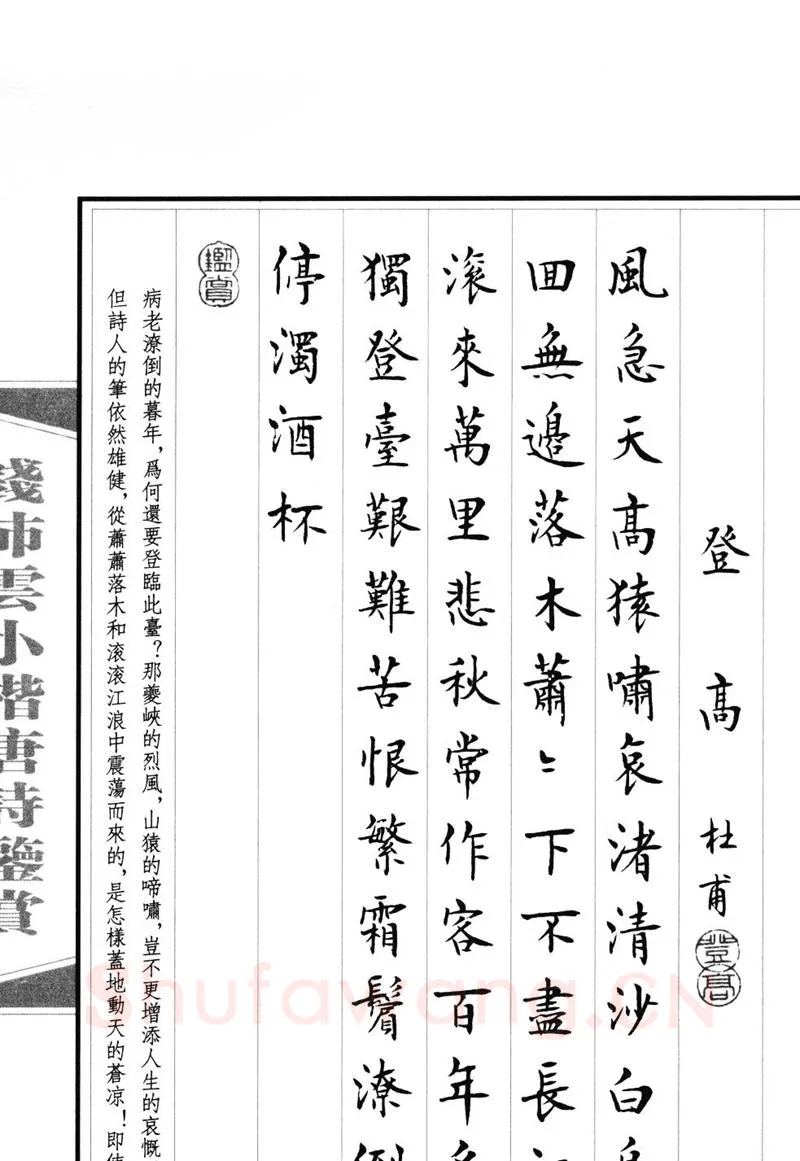 登高 杜甫 登高
風急天高猿嘯哀渚清沙白鳥
回無邊落木蕭〻下不盡長江
滾來萬里悲秋常作客百年多
獨登臺艱難苦恨繁霜鬢潦倒
停濁酒杯
鑑賞
病老潦倒的暮年，爲何還要登臨此臺？那夔峽的烈風，山猿的啼嘯，豈不更增添人生的哀慨
但詩人的筆依然雄健，從蕭蕭落木和滚滚江浪中震蕩而來的，是怎樣蓋地動天的蒼凉！即使
錢沛雲小楷唐詩鑒賞
Shufawang.CN